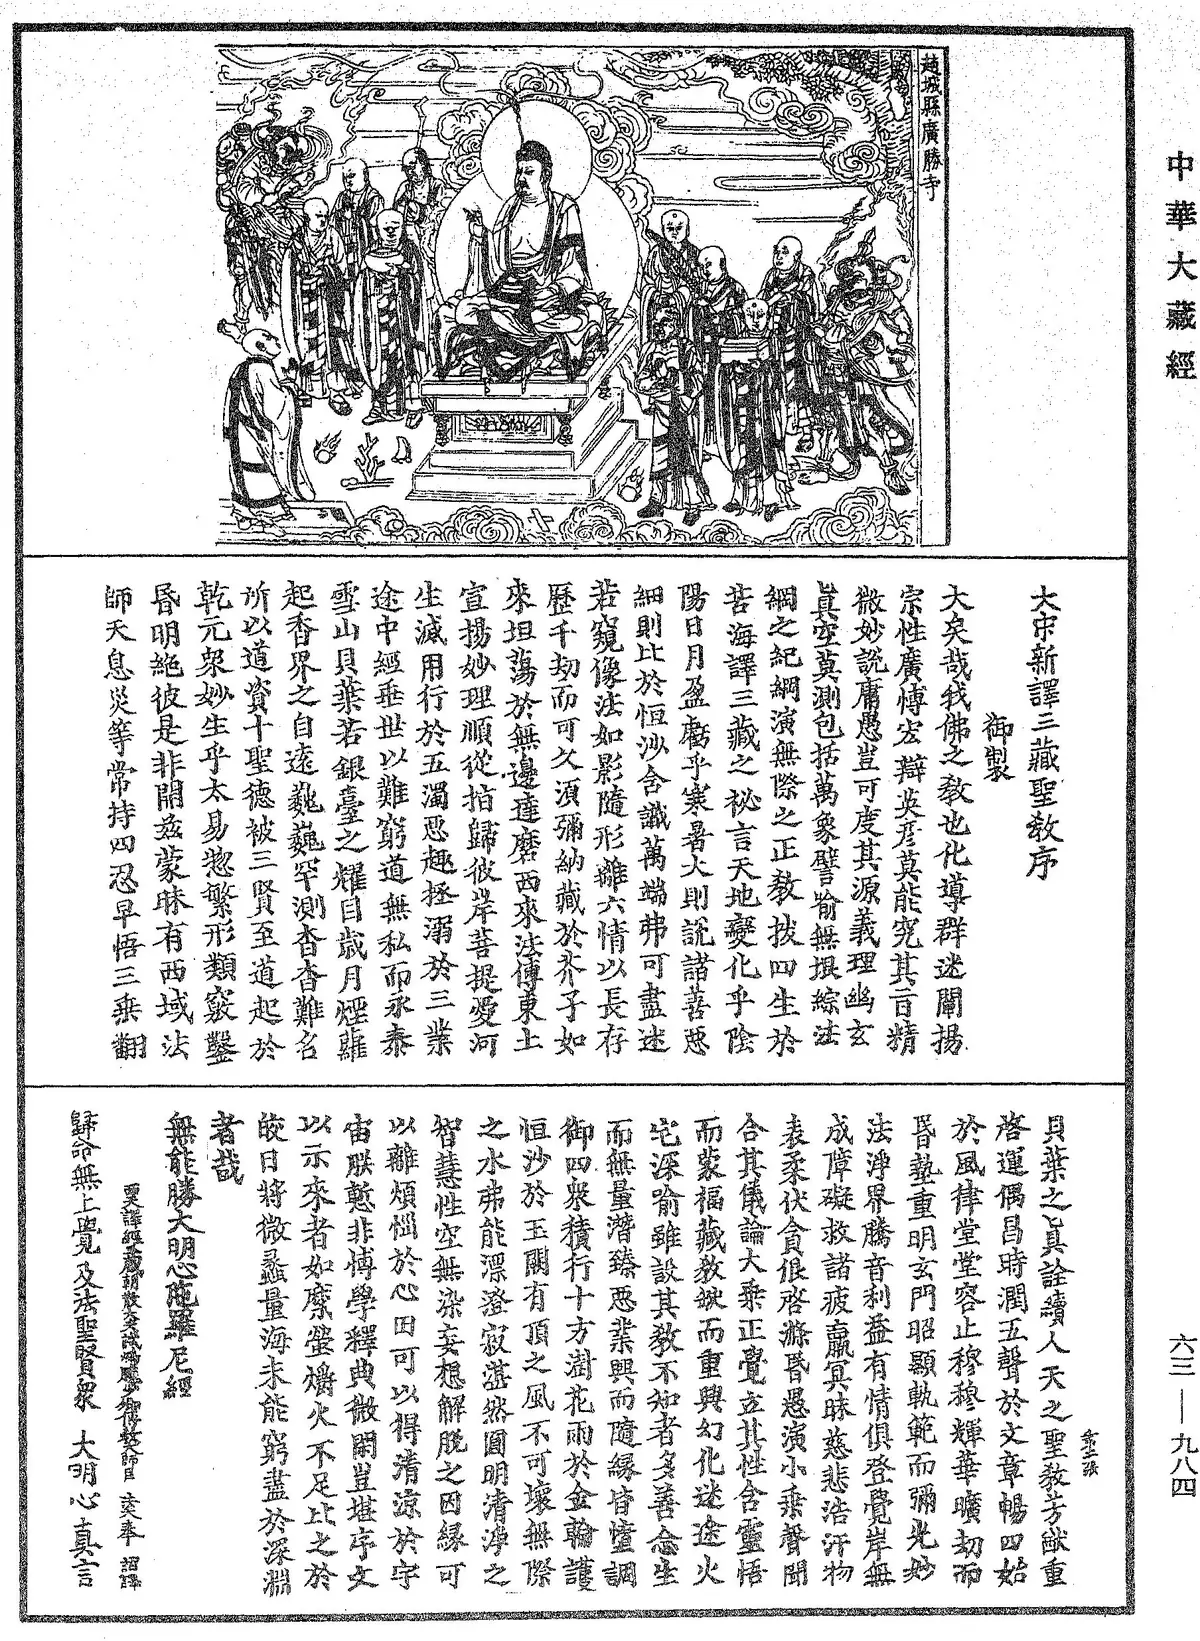 中華大藏經
趙城縣廣勝寺
大宋新譯三藏聖教序
御製
大矣哉我佛之教也化導群迷闡揚
宗性廣博宏辯英彥莫能究其旨精
微妙說庸愚豈可度其源義理幽玄
眞空莫測包括萬象譬喻無垠綜法
網之紀綱演無際之正教拔四生於
苦海譯三藏之祕言天地變化乎陰
陽日月盈虧乎寒暑大則說諸善惡
細則比於恒沙含識萬端弗可盡述
若窺像法如影隨形離六情以長存
歷千劫而可久須彌納藏於芥子如
來坦蕩於無邊達磨西來法傳東土
宣揚妙理順從指歸彼岸菩提愛河
生滅用行於五濁惡趣拯溺於三業
途中經垂世以難窮道無私而永泰
雪山貝葉若銀臺之耀目歲月煙蘿
起香界之自遠巍巍罕測杳杳難名
所以道資十聖德被三賢至道起於
乾元衆妙生乎太易惣繁形類竅鑿
昏明絕彼是非開茲蒙昧有西域法
師天息災等常持四忍早悟三乘翻
貝葉之眞詮續人天之聖教芳猷重
啓運偶昌時潤五聲於文章暢四始
於風律堂堂容止穆穆輝華曠劫而
昏墊重明玄門昭顯軌範而彌光妙
法淨界騰音利益有情俱登覺岸無
成障礙救諸疲羸冥昧慈悲浩汗物
表柔伏貪佷啓滌昏愚演小乘聲聞
合其儀論大乘正覺立其性含靈悟
而蒙福藏教缺而重興幻化迷途火
宅深喻雖設其教不知者多善念生
而無量潛臻惡業興而隨緣皆墮調
御四衆積行十方澍花雨於金輪護
恒沙於玉闕有頂之風不可壞無際
之水弗能漂澄寂湛然圓明清淨之
智慧性空無染妄想解脫之因緣可
以離煩惱於心田可以得清涼於宇
宙朕慙非博學釋典微閑豈堪序文
以示來者如縻螢爝火不足比之於
皎日將微蠡量海未能窮盡於深淵
者哉
無能勝大明心陀羅尼經
西天譯經三藏朝散大夫試鴻臚少卿傳教大師臣 法天奉 詔譯
歸命無上覺及法聖賢衆 大明心真言
六三—九八四